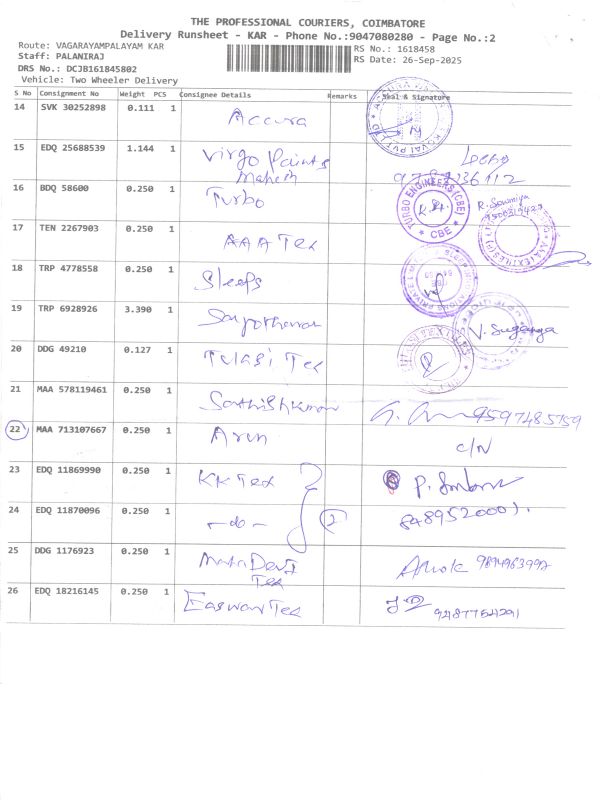 THE PROFESSIONAL COURIERS, COIMBATORE
Delivery Runsheet - KAR - Phone No.:9047080280 - Page No.:2
Route: VAGARAYAMPALAYAM KAR
RS No.: 1618458
Staff: PALANIRAJ
RS Date: 26-Sep-2025
DRS No.: DCJB161845802
Vehicle: Two Wheeler Delivery
S No Consignment No Weight PCS Consignee Details Remarks Seal & Signature
14 SVK 30252898 0.111 1 Accura
15 EDQ 25688539 1.144 1 Virgo Paints
Mahesh
16 BDQ 58600 0.250 1 Turbo TURBO ENGINEERS (CBE) * CBE * R. Sowmiya
17 TEN 2267903 0.250 1 AAA Tex
18 TRP 4778558 0.250 1 Sleeps
19 TRP 6928926 3.390 1 V. Suganya
20 DDG 49210 0.127 1 Tulasi Tex
21 MAA 578119461 0.250 1 Sathishkumar 9597485759
22 MAA 713107667 0.250 1 Arun C/N
23 EDQ 11869990 0.250 1 KK Tex
24 EDQ 11870096 0.250 1 -do- 2
25 DDG 1176923 0.250 1 Matha Devi
Tex
26 EDQ 18216145 0.250 1 Easwar Tex